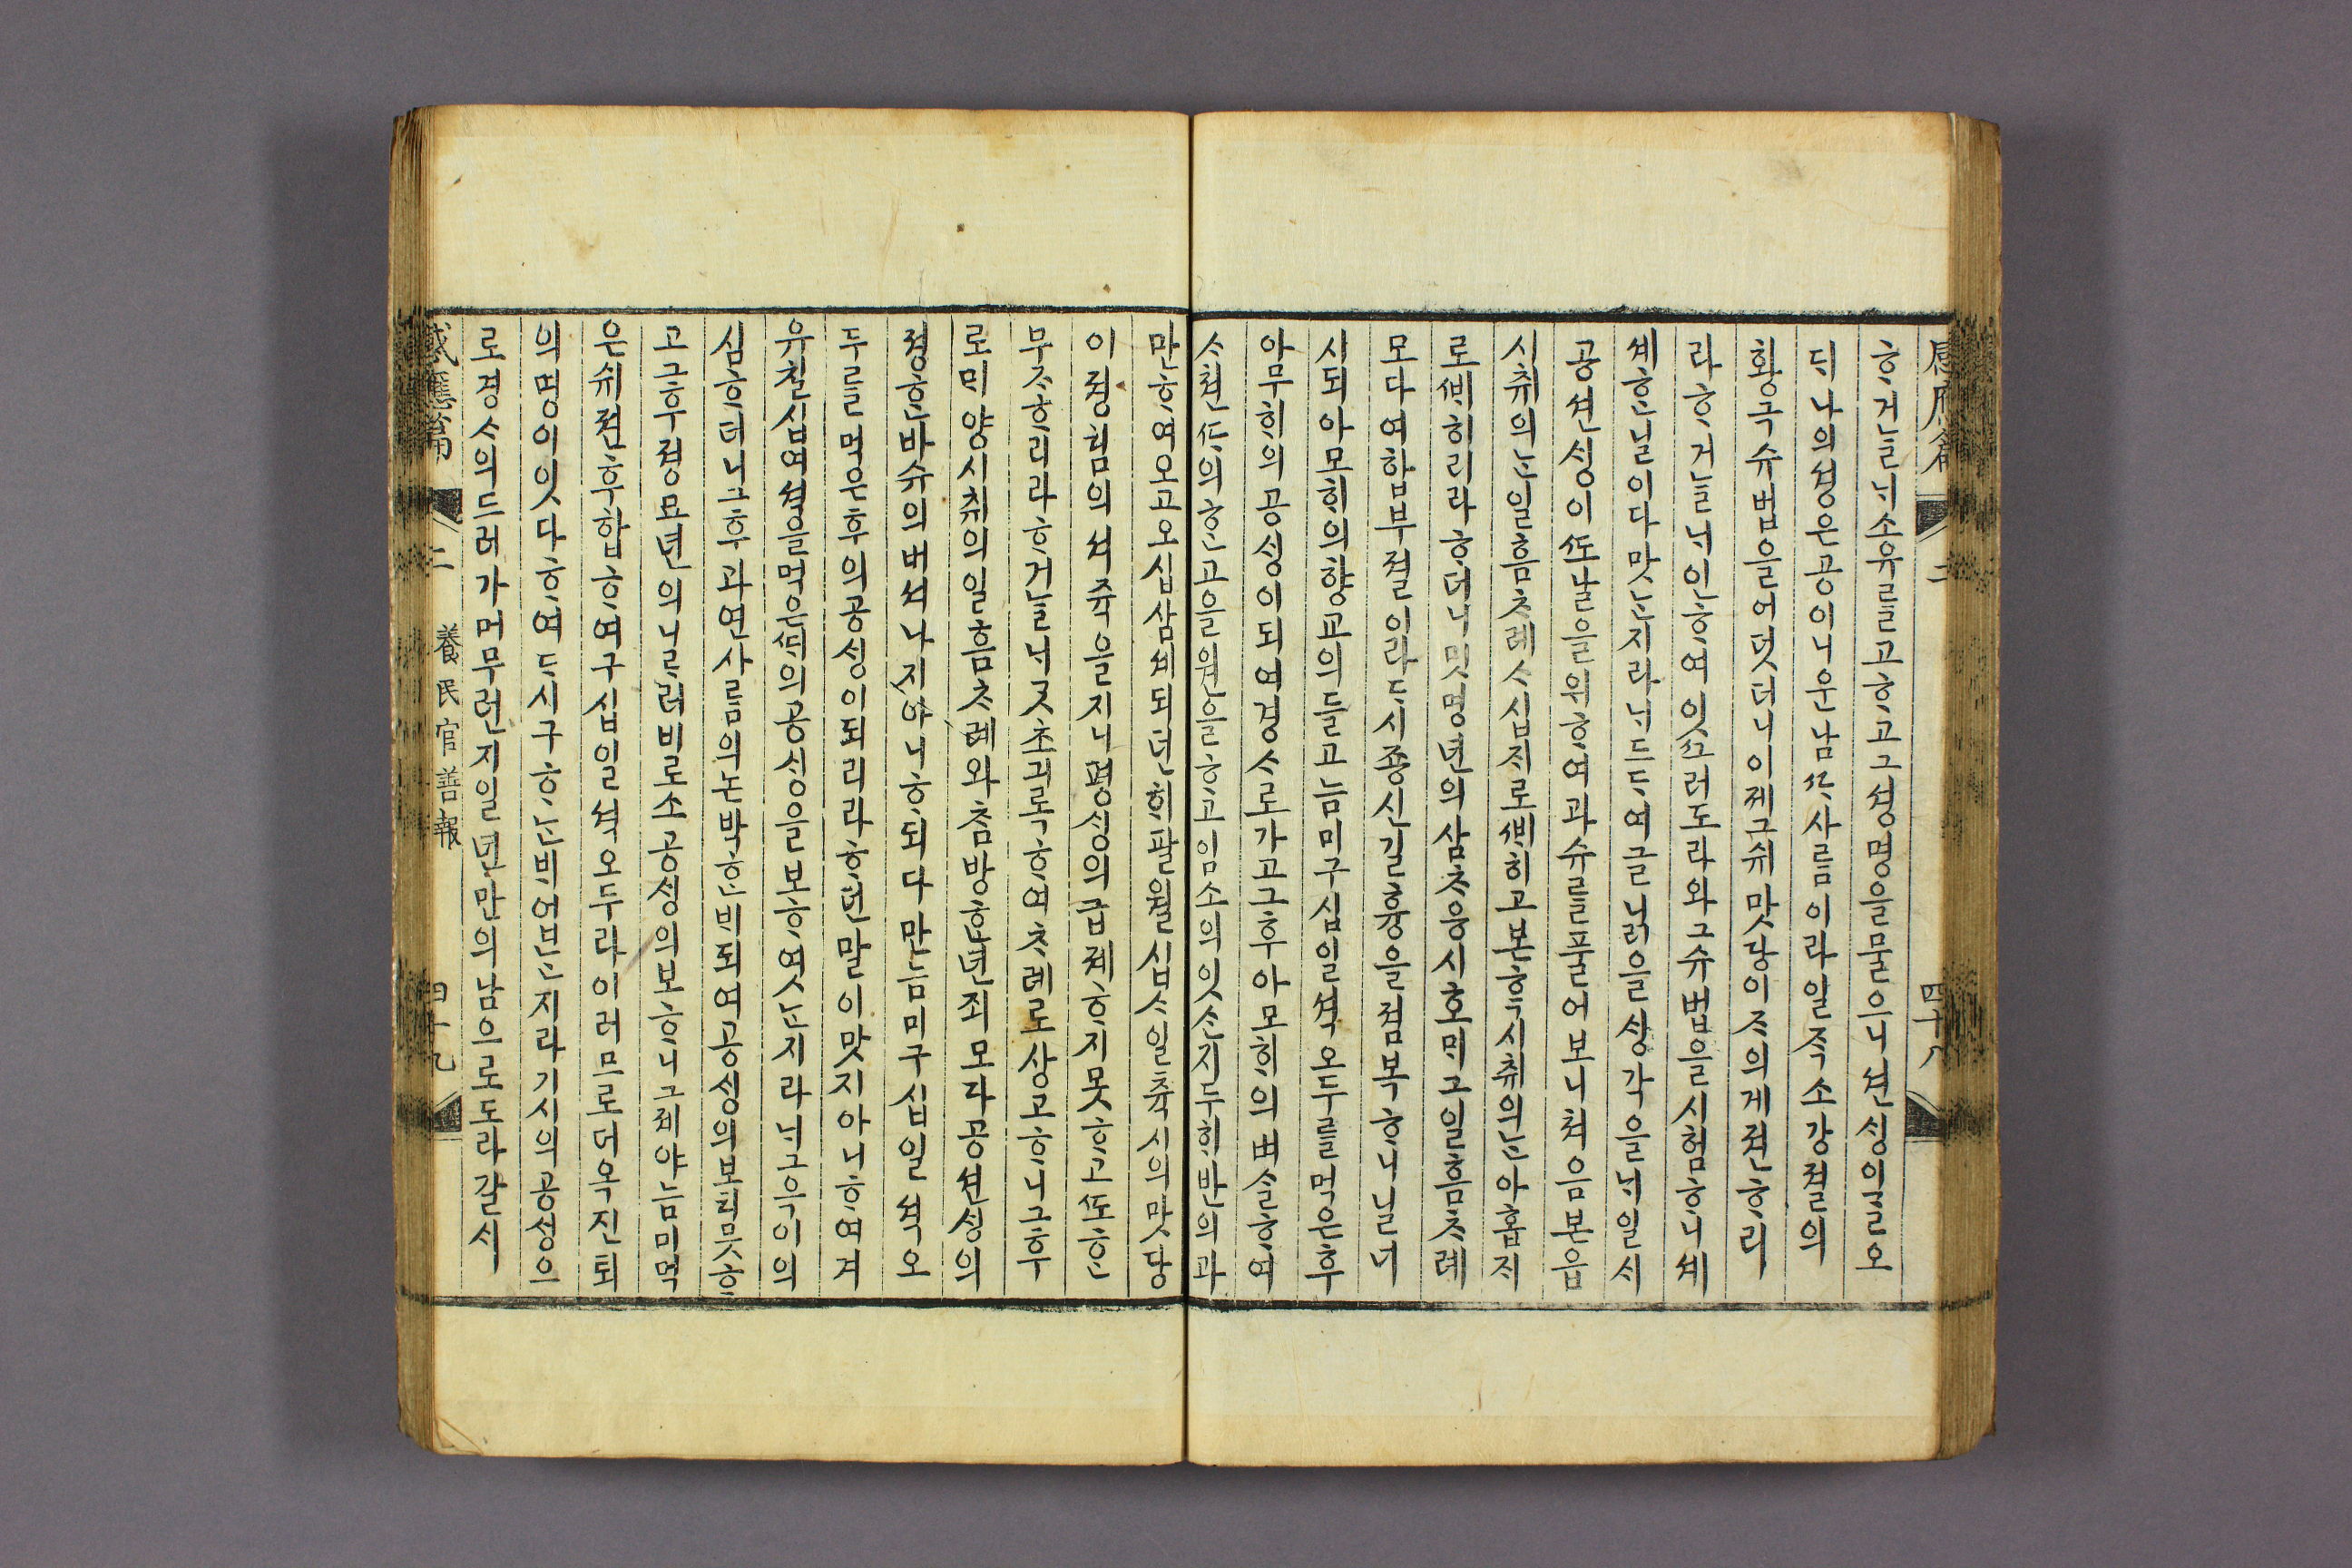 ᄒᆞ거ᄂᆞᆯ 내 소유를 고ᄒᆞ고 그 셩명을 물으니 션ᄉᆡᆼ의 글오
ᄃᆡ 나의 셩은 공이니 운남ᄯᅡ 사ᄅᆞᆷ이라 일즉 소강졀의
황극슈법을 어덧더니 이제 그ᄃᆡ 맛당이 ᄌᆞ의게 젼ᄒᆞ리
라 ᄒᆞ거ᄂᆞᆯ 내 인ᄒᆞ여 잇ᄭᅳ러 도라와 그 슈법을 시험ᄒᆞ니 셰
셰ᄒᆞᆫ 닐이 다 맛ᄂᆞᆫ지라 내 드ᄃᆡ여 글 닑을 ᄉᆡᆼ각을 내일ᄉᆡ
공션ᄉᆡᆼ이 ᄯᅩ 날을 위ᄒᆞ여 과슈를 풀어 보니 처음 본읍
시취의ᄂᆞᆫ 일홈 ᄎᆞ례 ᄉᆞ십ᄌᆡ로 ᄲᅢ히고 본흑 시취의ᄂᆞᆫ 아홉ᄌᆡ
로 ᄲᅢ히리라 ᄒᆞ더니 밋 명년의 삼ᄎᆞ 응시ᄒᆞ매 그 일홈 ᄎᆞ례
모다 여합부졀이라 ᄯᅩ 죵신 길흉을 졈복ᄒᆞ니 닐너
시되 아모ᄒᆡ의 향교의 들고 늠미 구십일셕 오두를 먹은 후
아무ᄒᆡ의 공ᄉᆡᆼ이 되여 경ᄉᆞ로 가고 그 후 아모ᄒᆡ의 벼ᄉᆞᆯᄒᆞ여
ᄉᆞ쳔ᄯᅡ의 ᄒᆞᆫ 고을 원을 ᄒᆞ고 임소의 잇ᄉᆞᆫ지 두ᄒᆡ 반의 과
만ᄒᆞ여 오고 오십삼셰 되던 ᄒᆡ 팔월 십ᄉᆞ일 츅시의 맛당
이 졍침의셔 죽을지니 평ᄉᆡᆼ의 급졔ᄒᆞ지 못ᄒᆞ고 ᄯᅩᄒᆞᆫ
무ᄌᆞᄒᆞ리라 ᄒᆞ거ᄂᆞᆯ 내 ᄌᆞ초 긔록ᄒᆞ여 ᄎᆞ례로 상고ᄒᆞ니 그 후
로 ᄆᆡ양 시취의 일홈 ᄎᆞ례와 참방ᄒᆞᆫ 년ᄌᆡ 모다 공션ᄉᆡᆼ의
졍ᄒᆞᆫ 바 슈의 버셔나지 아니ᄒᆞ되 다만 늠미 구십일셕 오
두를 먹은 후의 공ᄉᆡᆼ이 되리라 ᄒᆞ던 말이 맛지 아니ᄒᆞ여 겨
유 칠십여셕을 먹은 ᄯᅢ의 공ᄉᆡᆼ을 보ᄒᆞ엿ᄂᆞᆫ지라 내 그윽이 의
심ᄒᆞ더니 그 후 과연 사ᄅᆞᆷ의 논박ᄒᆞᆫ ᄇᆡ 되여 공ᄉᆡᆼ의 보ᄒᆡᆼ 못ᄒᆞ
고 그 후 졍묘년의 니ᄅᆞ러 비로소 공ᄉᆡᆼ의 보ᄒᆞ니 그제야 늠미 먹
은 쉬 젼후 합ᄒᆞ여 구십일셕 오두라 이러므로 더욱 진퇴
의 명이 잇다 ᄒᆞ여 ᄯᅩ시 구ᄒᆞᄂᆞᆫ ᄇᆡ 업ᄂᆞᆫ지라 기시의 공ᄉᆡᆼ으
로 경ᄉᆞ의 드러가 머무런지 일년만의 남으로 도라갈ᄉᆡ
感應篇 二 四十八
感應篇 二 養民官善報 四十九